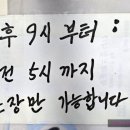 후 9시 부터 :
전 5시 까지
장만 가능합니다